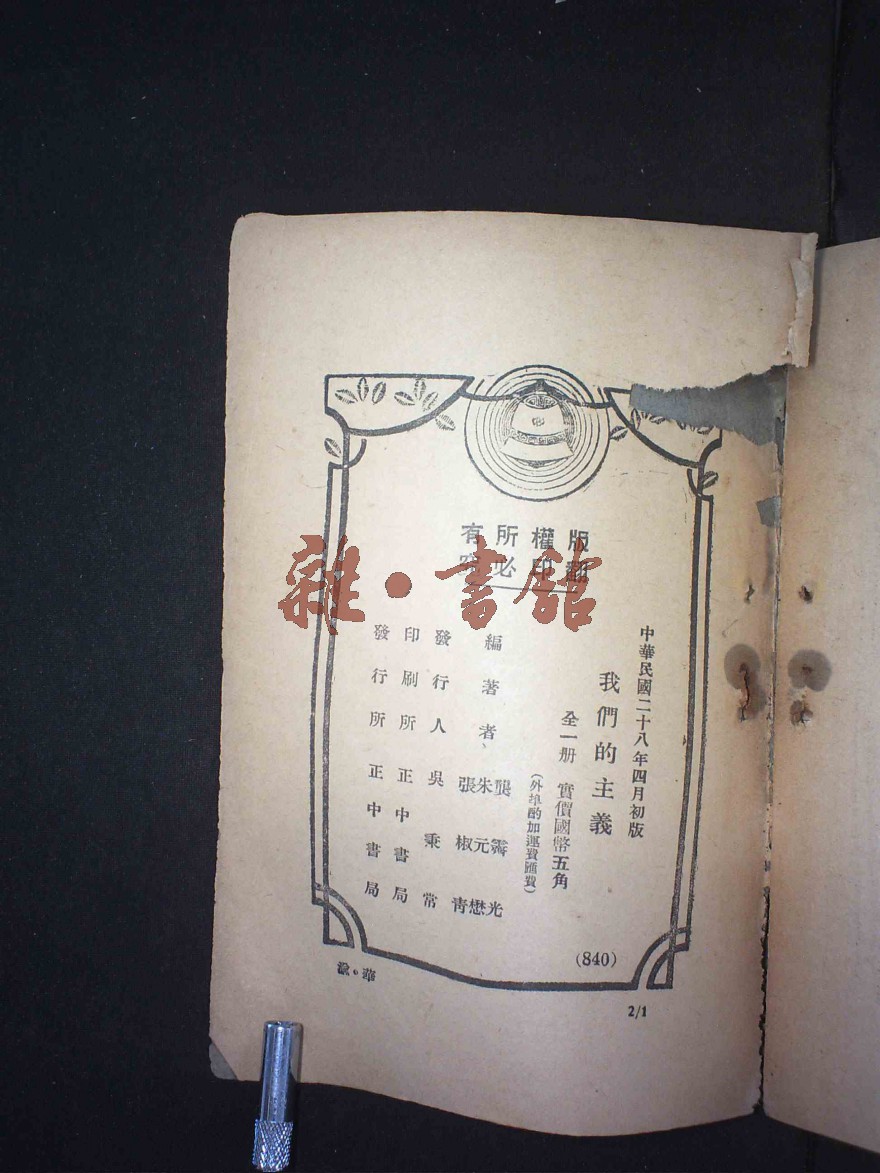 版權所有
翻印必究
中華民國二十八年四月初版
我們的主義
全一册 實價國幣五角
(外埠酌加運費匯費)
編著者 龔霽光
朱元懋
張椒青
發行人 吳秉常
印刷所 正中書局
發行所 正中書局
(840)
渝・華
2/1
雜・書館